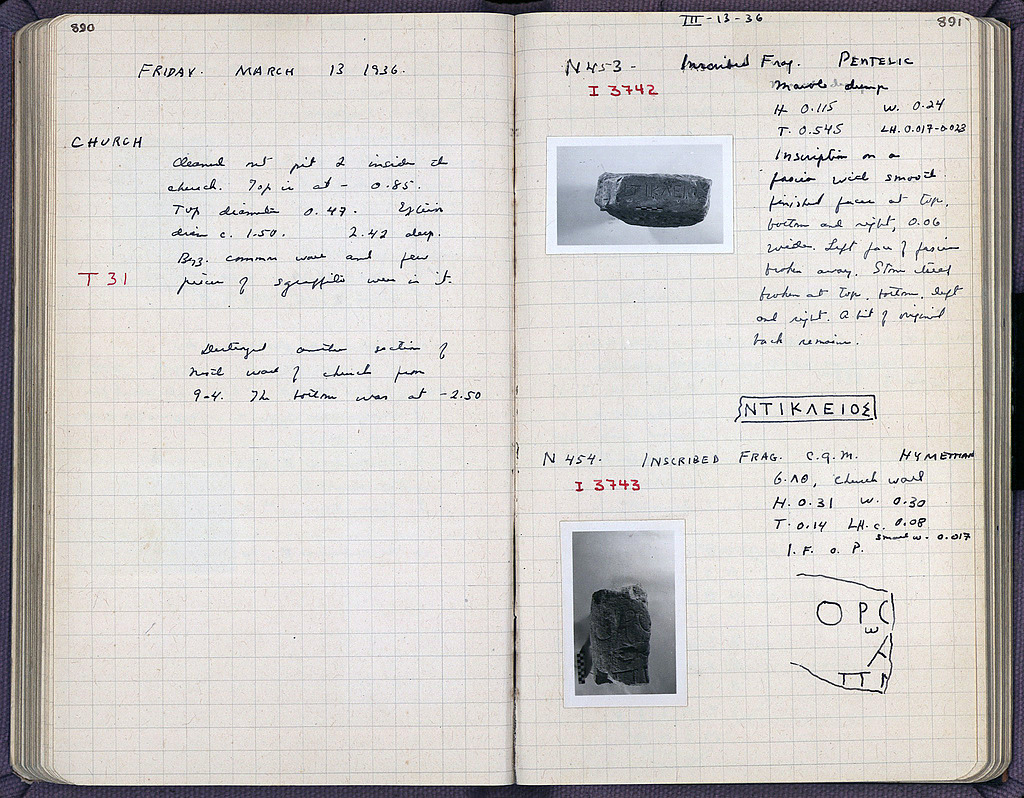 890
FRIDAY. MARCH 13 1936.
CHURCH
Cleaned out pit 2 inside the
church. Top is at - 0.85.
Top diameter 0.47.
diam c. 1.50. 2.42 deep.
Byz. common ware and few
T 31
pieces of sgraffito were in it.
Destroyed another section of
north wall of church from
9-4. The bottom was at -2.50
III-13-36
891
N 453- Inscribed Frag. PENTELIC
I 3742
Marble dump
H 0.115 W. 0.24
T. 0.545 LH. 0.017-0.023
Inscription on a
fascia with smooth
finished faces at top,
bottom and right, 0.06
wide. Left face of fascia
broken away. Stone itself
broken at top, bottom, left
and right. A bit of original
back remains.
ΝΤΙΚΛΕΙΟΣ
N 454. INSCRIBED FRAG. C.G.M. HYMETTIAN
I 3743
6.ΛΘ, church wall
H. 0.31 W. 0.30
T. 0.14 LH. c. 0.08
small ω. 0.017
I. F. O. P.
Ο Ρ C
ω
Α
Τ Τ